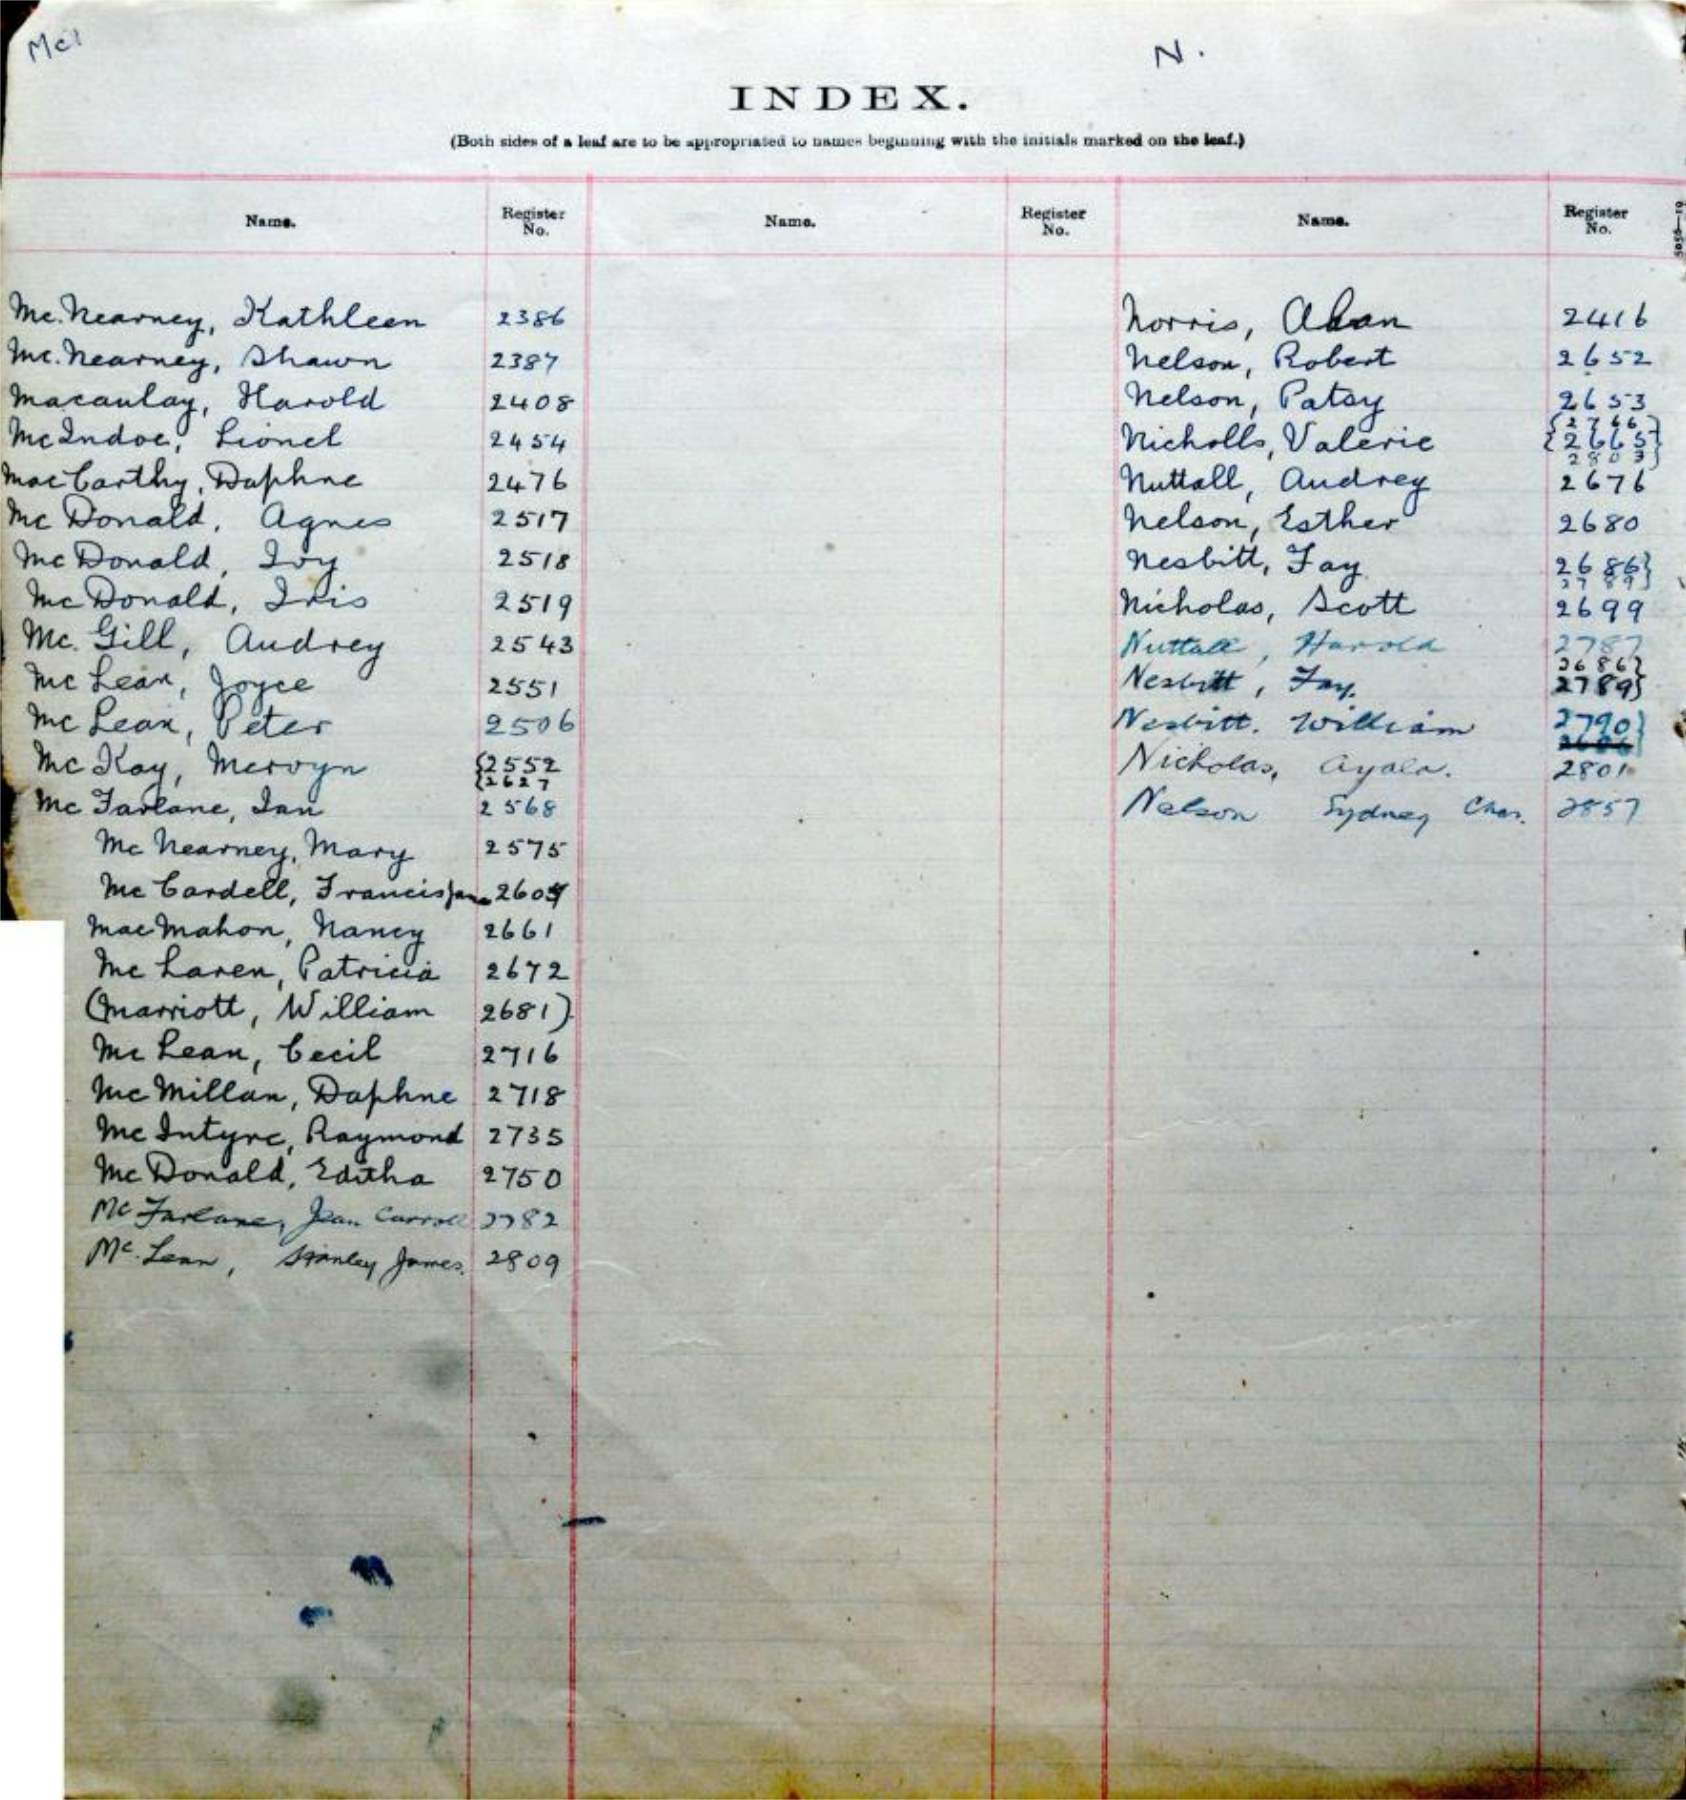 Mc N.
INDEX.
(Both sides of a leaf are to be appropriated to names beginning with the initials marked on the leaf.)
Name. Register No. Name. Register No. Name. Register No.
Mc. Nearney, Kathleen 2386
Mc. Nearney, Shawn 2387
Macaulay, Harold 2408
McIndoe, Lionel 2454
MacCarthy, Daphne 2476
Mc Donald, Agnes 2517
Mc Donald, Ivy 2518
Mc Donald, Iris 2519
Mc. Gill, Audrey 2543
Mc Lean, Joyce 2551
Mc Lean, Peter 2506
Mc Kay, Mervyn {2552
{2627
Mc Farlane, Ian 2568
Mc Nearney, Mary 2575
Mc Cardell, Francis 260
MacMahon, Nancy 2661
Mc Laren, Patricia 2672
(Marriott, William 2681)
Mc Lean, Cecil 2716
Mc Millan, Daphne 2718
Mc Intyre, Raymond 2735
Mc Donald, Editha 2750
Mc Farlane, Jean Carroll 2782
Mc. Lean, Stanley James. 2809
Norris, Alan 2416
Nelson, Robert 2652
Nelson, Patsy 2653
{2766}
Nicholls, Valerie {2665}
2803}
Nuttall, Audrey 2676
Nelson, Esther 2680
Nesbitt, Fay 2686}
2789}
Nicholas, Scott 2699
Nuttall, Harold 2787
2686}
Nesbitt, Fay. 2789}
Nesbitt. William 2790}
Nicholas, Ayala. 2801
Nelson Sydney Chas. 2857